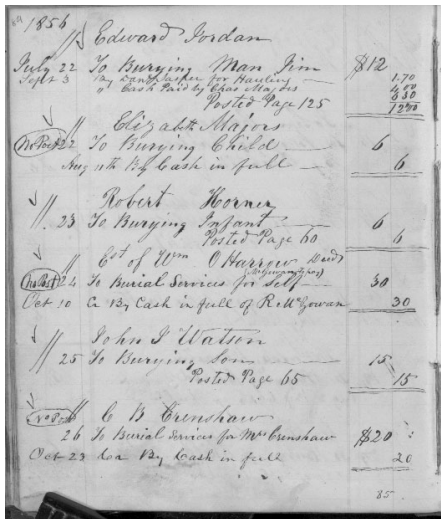 1856
// Edward Jordan
July 22 To Burying Man Jim — $12
Sept 3 By Danl Jasper for Hauling — 1.70
" Cash Paid by Chas Majors
Posted Page 125 12
Elizabeth Majors
No Post 22 To Burying Child — 6
Aug 11th By Cash in full — 6
Robert Horner
// 23 To Burying Infant — 6
Posted Page 60 6
Est of Wm O Harrow Decd
No Post 24 To Burial Services for Self — 30
Oct 10 Cr By Cash in full of R McGowan 30
// John J Watson
25 To Burying Son — 15
Posted Page 65 15
No Post C B Crenshaw
26 To Burial Services for Mrs Crenshaw $20
Oct 23 Cr By Cash in full 20
85